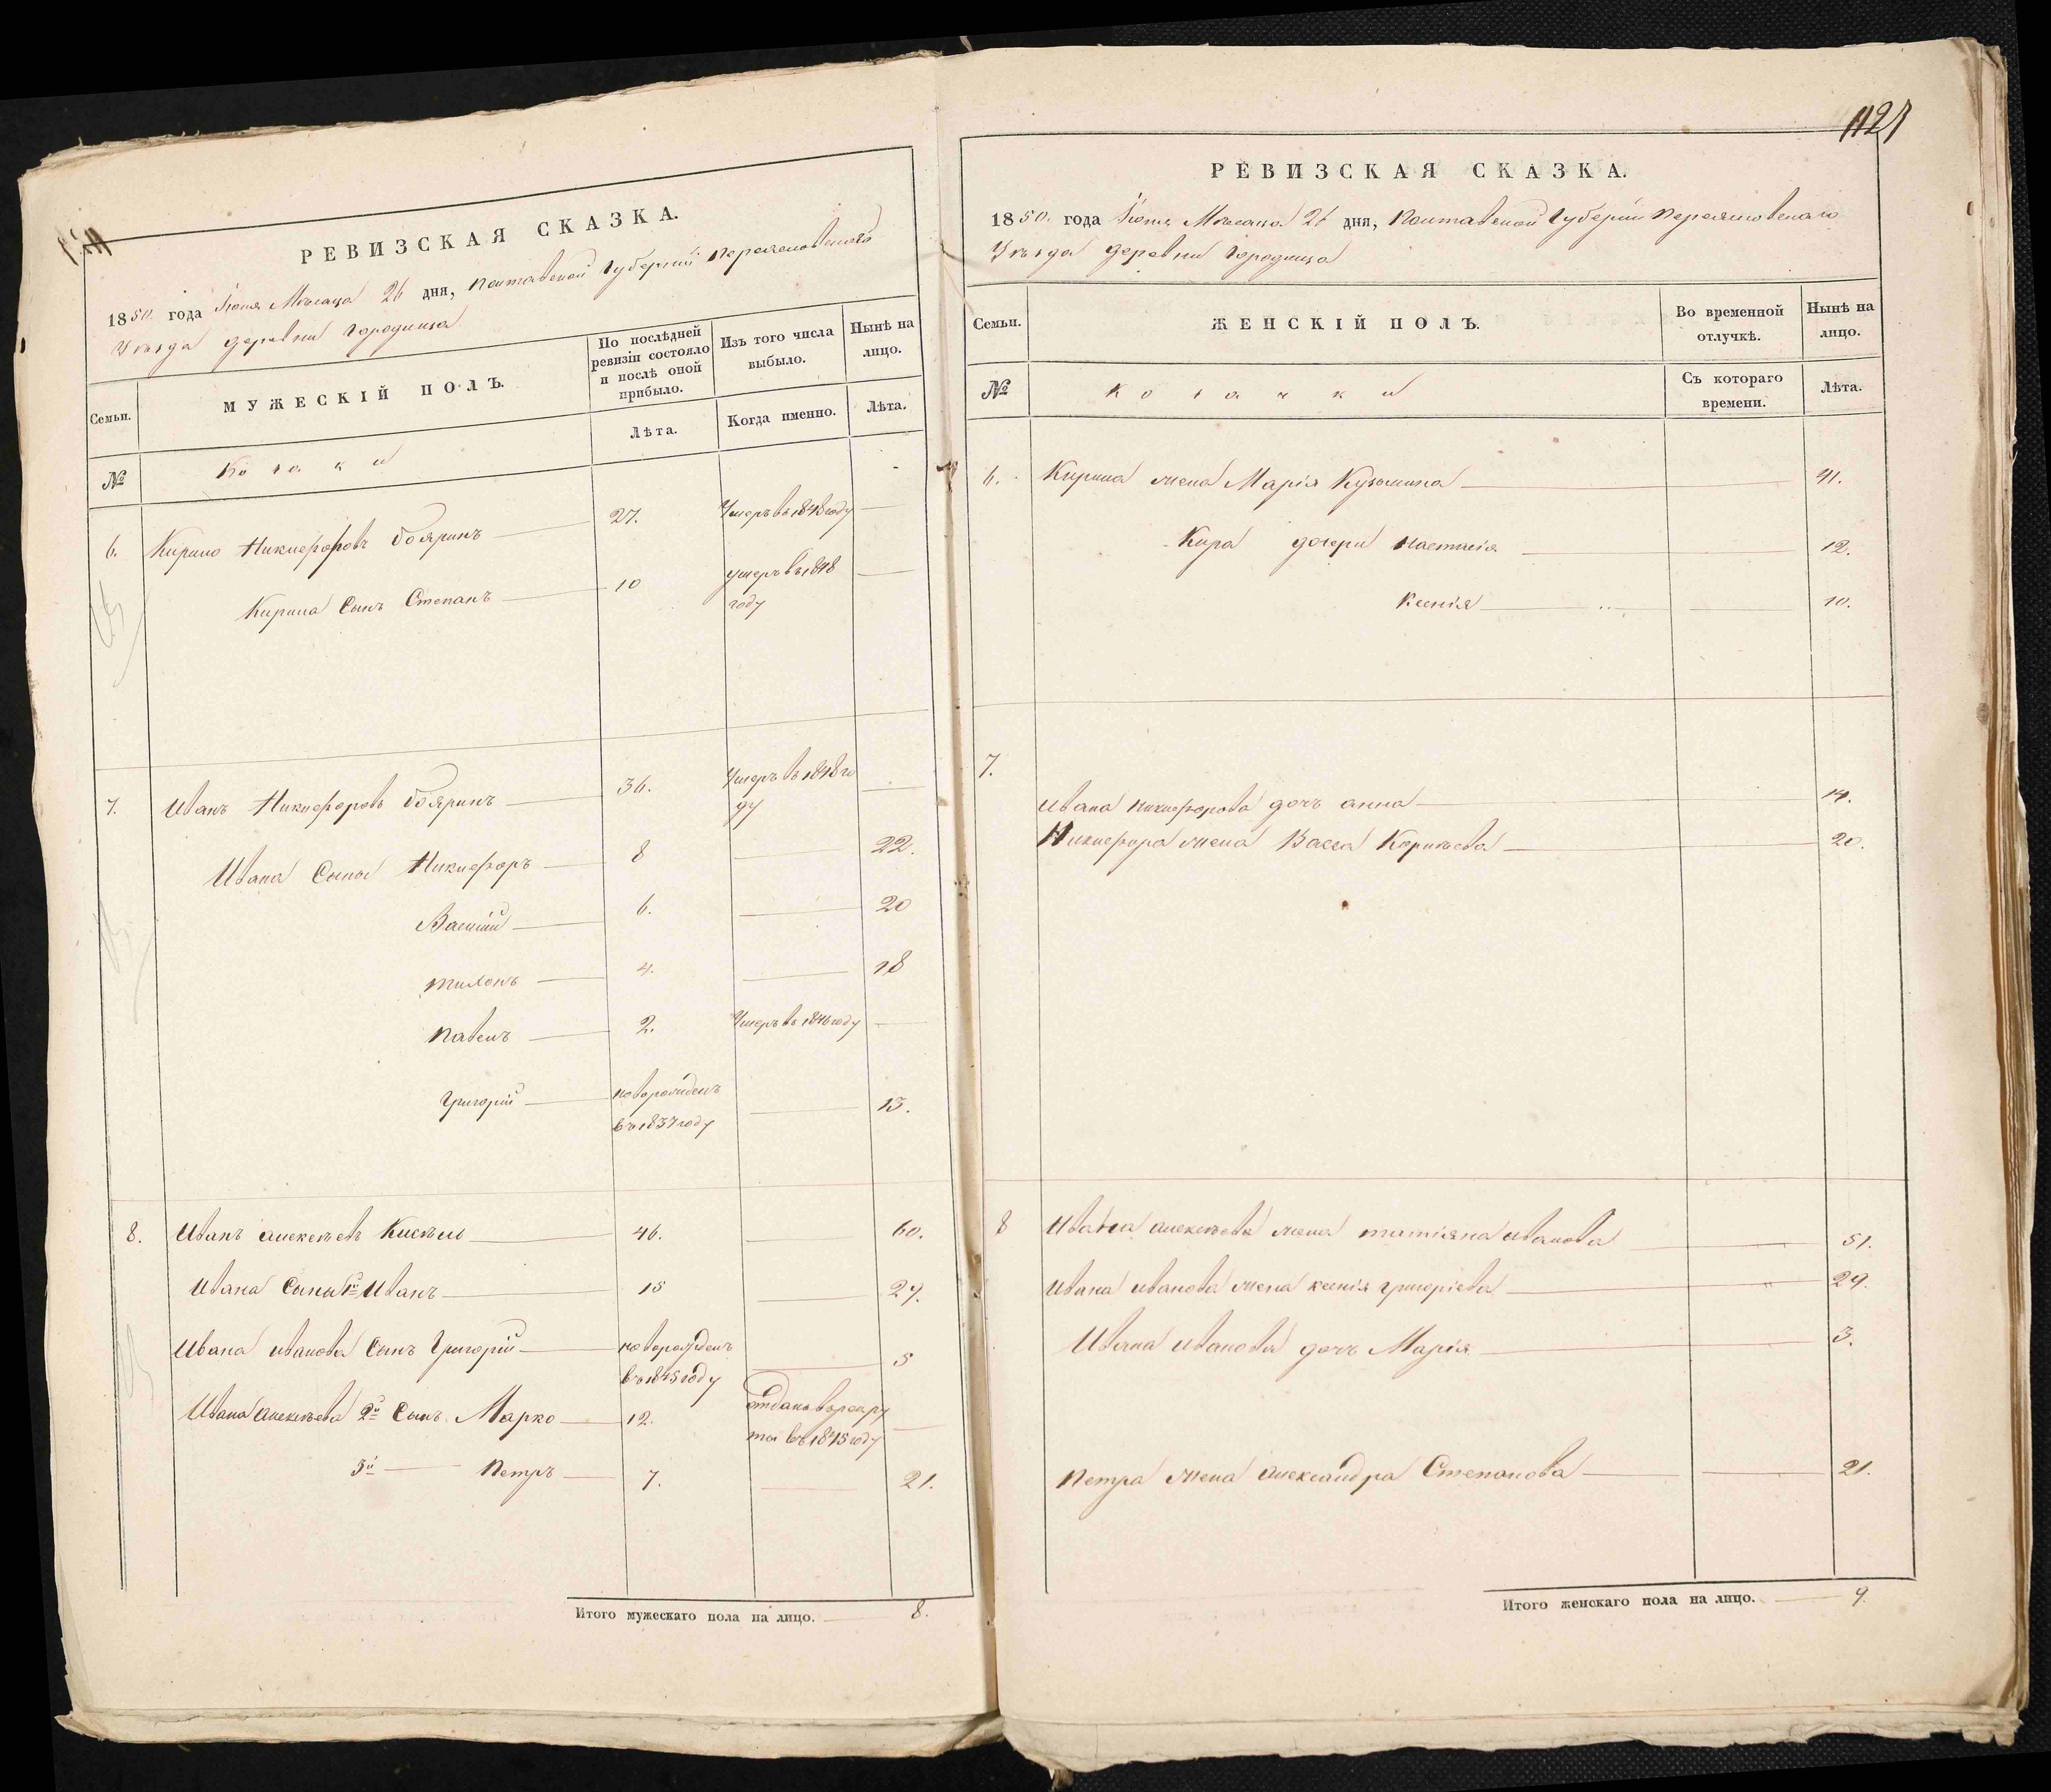 РЕВИЗСКАЯ СКАЗКА.
1850. года Іюня Мѣсяца 26 дня, Полтавской Губерніи Переясловскаго
Уѣзда деревни Городища
Семьи.
МУЖЕСКІЙ ПОЛЪ.
По послѣдней ревизіи состояло и послѣ оной прибыло.
Изъ того числа выбыло.
Нынѣ на лицо.
Лѣта.
Когда именно.
Лѣта.
№
Козаки
6. Кирило Никифоровъ Бояринъ 27. Умеръ въ 1848 году
Кирила Сынъ Степанъ 10 умеръ въ 1848
году
7. Иванъ Никифоровъ Бояринъ 36. Умеръ въ 1848 го
ду
Ивана Сыны Никифоръ 8 22.
Василій 6. 20
Тихонъ 4. 18
Павелъ 2. Умеръ въ 1846 году
Григорій новорожденъ 13.
въ 1837 году
8. Иванъ Алексѣевъ Кисѣль 46. 60.
Ивана Сыны 1й Иванъ 15 29.
Ивана Иванова Сынъ Григорій новорожденъ 5
въ 1845 году
Ивана Алексѣева 2й Сынъ Марко 12. отданъ въ рекру
ты въ 1845 году
3й Петръ 7. 21.
Итого мужескаго пола на лицо. 8.
РЕВИЗСКАЯ СКАЗКА.
1850. года Іюня Мѣсяца 26 дня, Полтавской Губерніи Переясловскаго
Уѣзда деревни Городища
Семьи.
ЖЕНСКІЙ ПОЛЪ.
Во временной отлучкѣ.
Нынѣ на лицо.
№
Козачки
Съ котораго времени.
Лѣта.
6. Кирила жена Марія Кузьмина 41.
Кира дочери Настасія 12.
Ксенія 10.
7.
Ивана Никифорова дочь Анна 14.
Никифора жена Васса Корнѣева 20.
8 Ивана Алексѣева жена Татіяна Иванова 51.
Ивана Иванова жена Ксенія Григоріева 29.
Ивана Иванова дочь Марія 3.
Петра жена Александра Степанова 21.
Итого женскаго пола на лицо. 9.